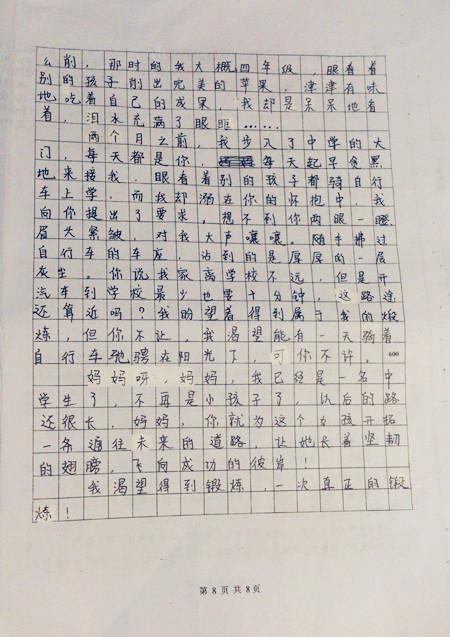 么削，那时的我大概四年级 眼看着
别的孩子削出完美的苹果，津津有味
地吃着自己的成果，我却是呆呆地看
着，泪水充满了眼眶……
两个月之前，我步入了中学的大
门，每天都是你，每天起早贪黑
地来接我。眼看着别的孩子都骑自行
车上学，而我却溺在你的怀抱中，我
向你提出了要求，想不到你两眼一瞪，
眉大紧皱，对我大声嚷嚷。随手拂过
自行车的车灰，沾到的是厚厚的一层
灰尘。你说我家离学校不远，但是开
汽车到学校最少也要十分钟，这路途
还算近吗？我盼望着得到属于我的煅
炼，但你不让，我渴望能有一天骑着
自行车驰骋在阳光下，可你不许。600
妈妈呀，妈妈，我已经是一名中
学生了 不再是小孩子了，以后的路
还很长，妈妈，你就为这个女孩开拓
一条通往未来的道路，让她长着坚韧
的翅膀，飞向成功的彼岸！
我渴望得到锻炼，一次真正的锻
炼！
第 8 页 共 8页